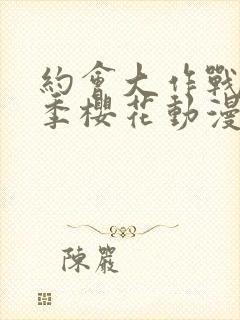 約會大作戰
季櫻花動漫
陳嚴